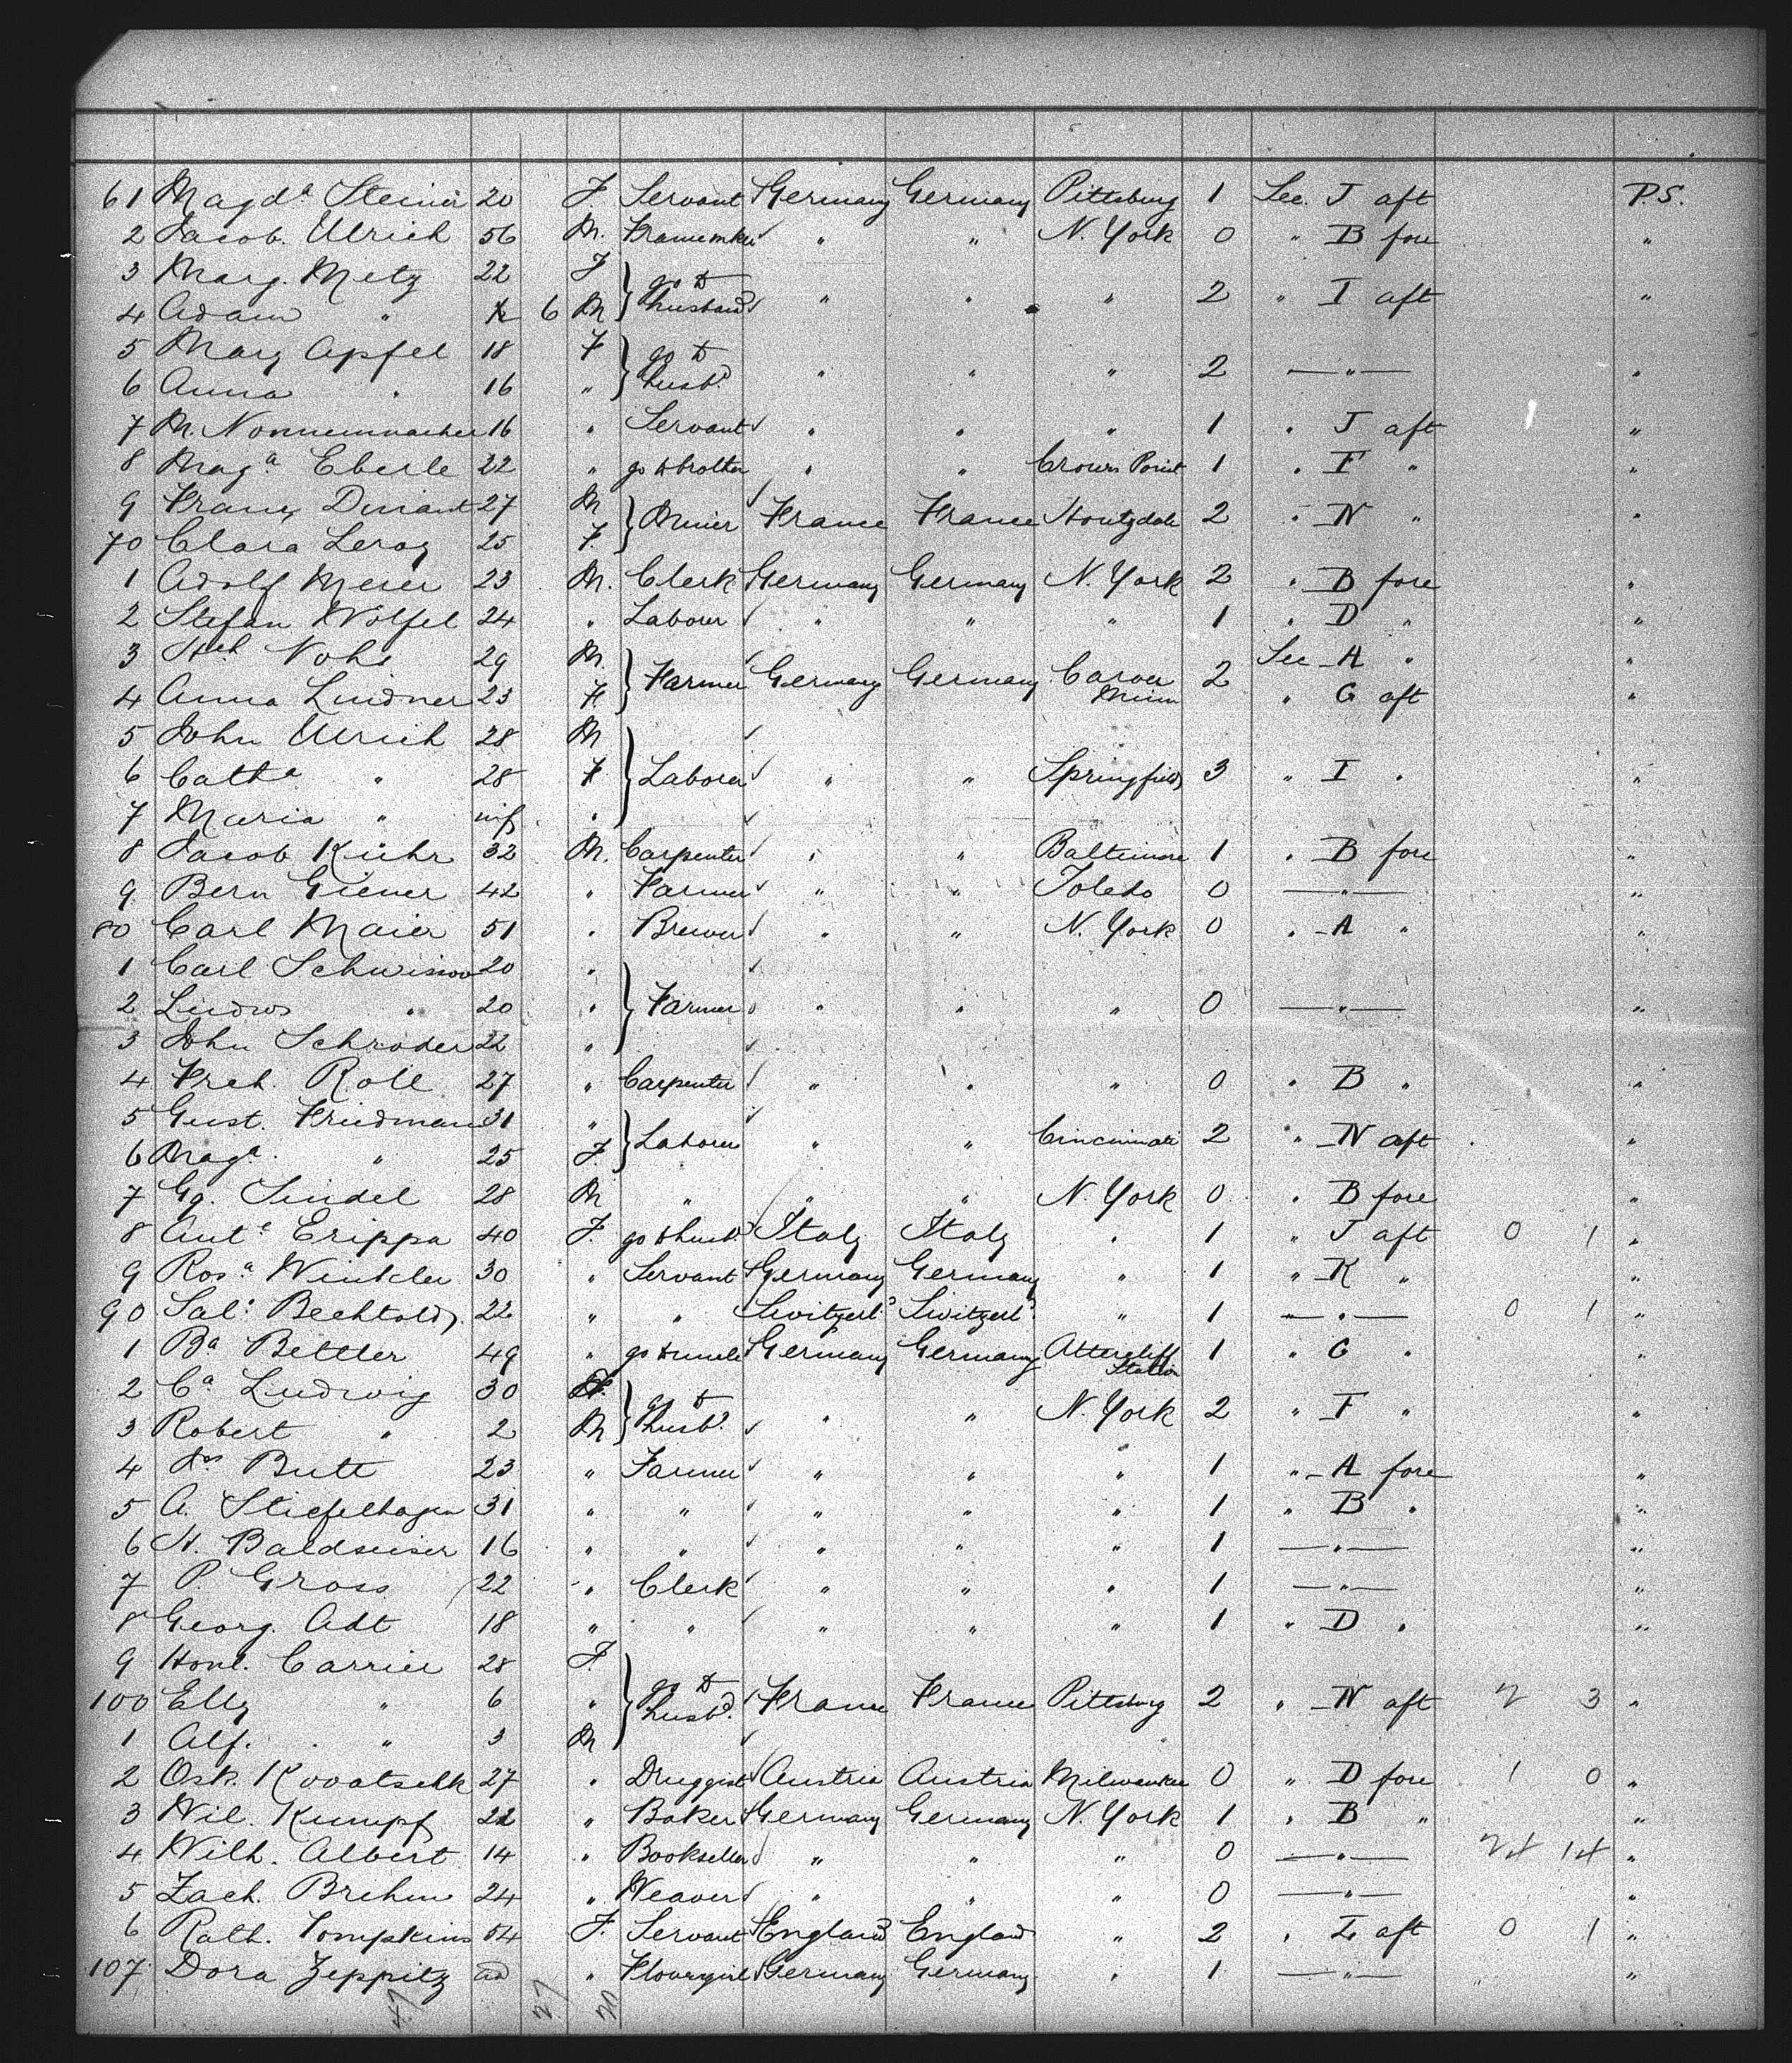 61 Magdᵃ Steinir 20 F. Servant Germany Germany Pittsburg 1 Sec. J aft P.S.
2 Jacob. Ulrich 56 M. Framemker " " N. York 0 " B fore "
3 Marg. Metz 22 F } go to husband " " " 2 " I aft "
4 Adam " 6 M
5 Marg Apfel 18 F } go to husbd " " " 2 — " — "
6 Anna " 16 "
7 M. Nonnenmacher 16 " Servant " " " 1 " J aft "
8 Magᵃ Eberle 22 " go to brother " " Crown Point 1 " F " "
9 Franz Duriant 27 M } Miner France France Houtzdale 2 " N " "
70 Clara Leroy 25 F.
1 Adolf Meier 23 M. Clerk Germany Germany N. York 2 " B fore "
2 Stefan Wölfel 24 " Laborer " " " 1 " D " "
3 Hch Nohe 29 M. } Farmer Germany Germany Carver Minn 2 Sec A " "
4 Anna Lindner 23 F. " G aft "
5 John Ulrich 28 M
6 Cathᵃ " 28 F } Laborer " " Springfield 3 " I " "
7 Maria " inf. "
8 Jacob Kühr 32 M. Carpenter " " Baltimore 1 " B fore "
9 Bern Giener 42 " Farmer " " Toledo 0 — " — "
80 Carl Maier 51 " Brewer " " N. York 0 " A " "
1 Carl Schwissow 20 "
2 Ludw " 20 " } Farmer " " " 0 — " — "
3 John Schröder 22 "
4 Frch. Roll 27 " Carpenter " " " 0 " B " "
5 Gust. Friedman 31 " } Laborer " " Cincinnati 2 " N aft "
6 Magᵃ. " 25 F.
7 Gg. Sindel 28 M " " " N. York 0 " B fore "
8 Antᵉ Erippa 40 F. go to husbd Italy Italy " 1 " J aft 0 1 "
9 Rosᵃ Winkler 30 " Servant Germany Germany " 1 " K " "
90 Salᵉ Bechtold 22 " " Switzerld Switzerld " 1 — " — 0 1 "
1 Bᵃ Bettler 49 " go to uncle Germany Germany Attercliff Station 1 " G " "
2 Cᵃ Ludwig 30 F. } go to husbd " " N. York 2 " F " "
3 Robert " 2 M
4 Jos Butt 23 " Farmer " " " 1 " A fore "
5 A. Stiefelhagen 31 " " " " " 1 " B " "
6 H. Baldseiser 16 " " " " " 1 — " — "
7 P. Gross 22 " Clerk " " " 1 — " — "
8 Georg. Adt 18 " " " " " 1 " D " "
9 Honl. Carrier 28 F.
100 Elly " 6 " } go to husbd. France France Pittsburg 2 " N aft 2 3 "
1 Alf. " 3 M
2 Osk. Kovatschk 27 " Druggist Austria Austria Milwaukee 0 " D fore 1 0 "
3 Wil. Kumpf 22 " Baker Germany Germany N. York 1 " B " "
4 Wilh. Albert 14 " Bookseller " " " 0 — " — 24 14 "
5 Zach. Brehm 24 " Weaver " " " 0 — " — "
6 Kath. Tompkins 54 F. Servant England England " 2 " L aft 0 1 "
107 Dora Zeppitz " Flowergirl Germany Germany " 1 — " — "
47 27 20